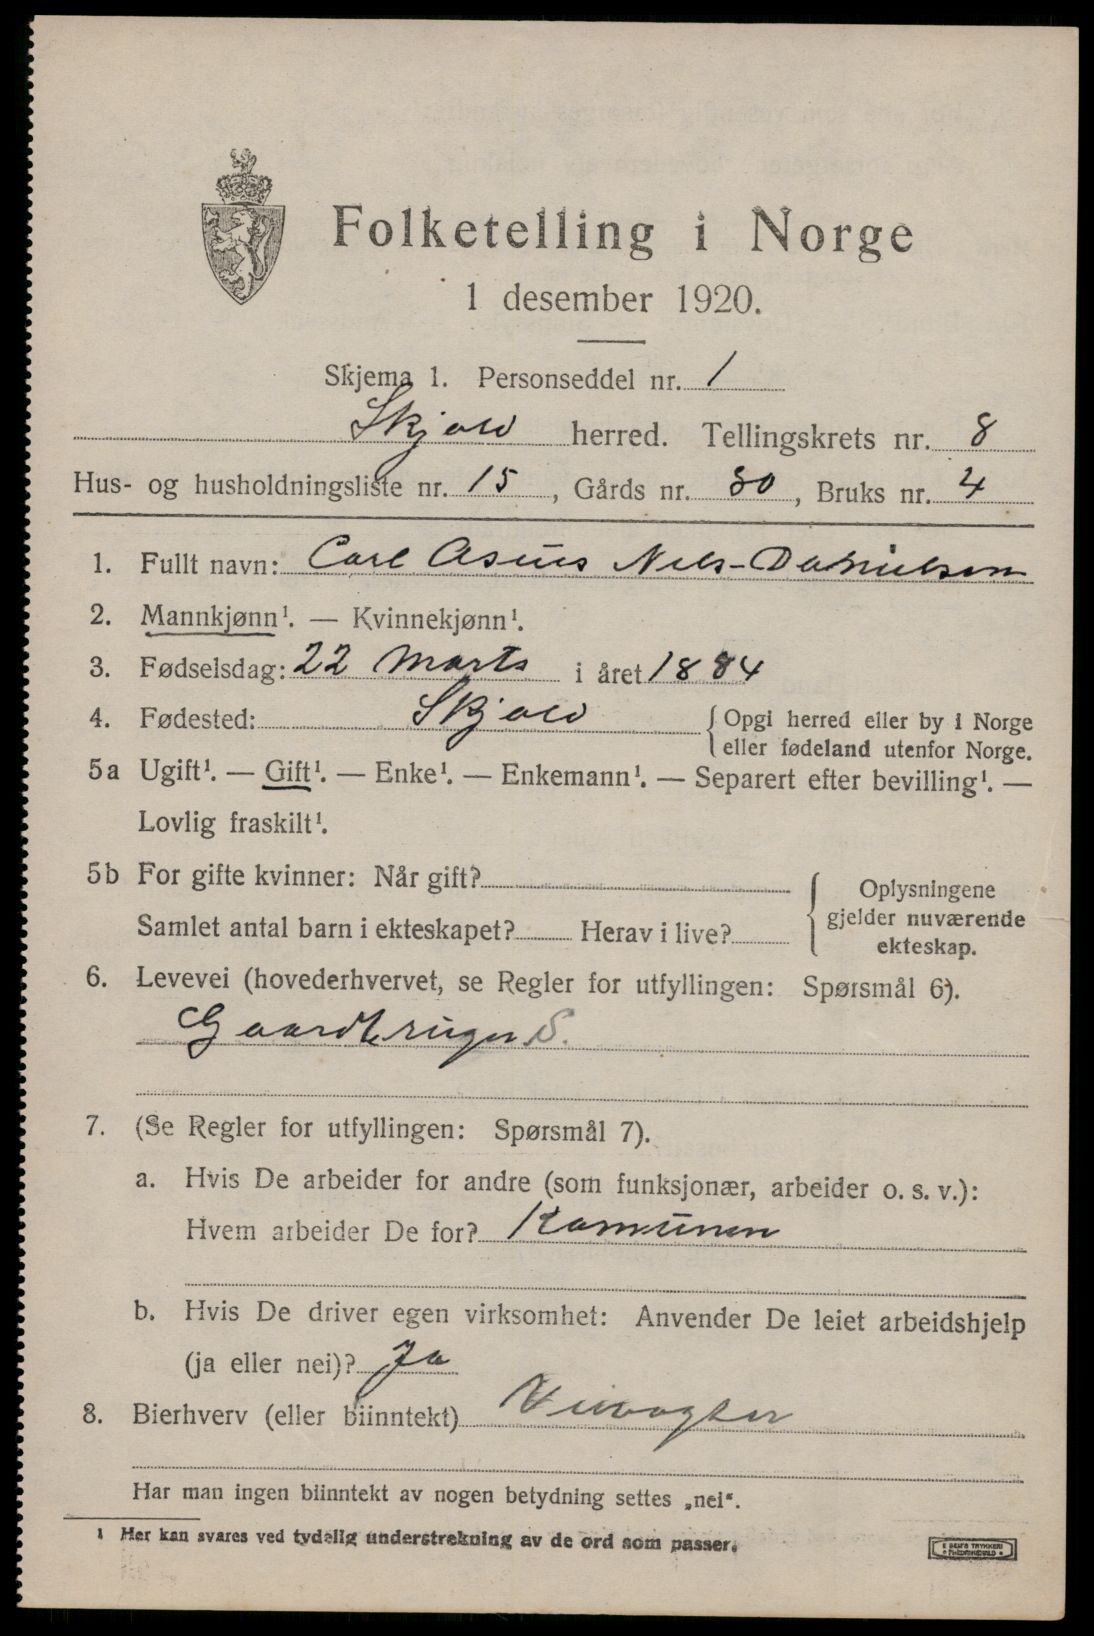 Folketelling i Norge
1 desember 1920.
Skjema 1. Personseddel nr. 1
Skjold herred. Tellingskrets nr. 8
Hus- og husholdningsliste nr. 15, Gårds nr. 30, Bruks nr. 4
1. Fullt navn: Carl Asius Nils-Danielsen
2. Mannkjønn¹. — Kvinnekjønn¹.
3. Fødselsdag: 22 Marts i året 1884
4. Fødested: Skjold {Opgi herred eller by i Norge
eller fødeland utenfor Norge.
5a Ugift¹. — Gift¹. — Enke¹. — Enkemann¹. — Separert efter bevilling¹. —
Lovlig fraskilt¹.
5b For gifte kvinner: Når gift?
Samlet antal barn i ekteskapet? Herav i live?
{Oplysningene
gjelder nuværende
ekteskap.
6. Levevei (hovederhvervet, se Regler for utfyllingen: Spørsmål 6).
Gaardbruger S.
7. (Se Regler for utfyllingen: Spørsmål 7).
a. Hvis De arbeider for andre (som funksjonær, arbeider o. s. v.):
Hvem arbeider De for? Komunen
b. Hvis De driver egen virksomhet: Anvender De leiet arbeidshjelp
(ja eller nei)? Ja
8. Bierhverv (eller biinntekt) Veivogter
Har man ingen biinntekt av nogen betydning settes „nei“.
1 Her kan svares ved tydelig understrekning av de ord som passer.